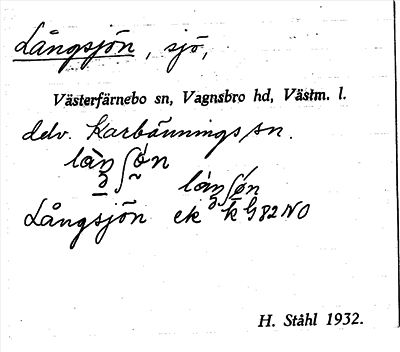 Långsjön, sjö,
Västerfärnebo sn, Vagnsbro hd, Västm. l.
delv. Karbennings sn.
Långsjön ek k G82 NO
H. Ståhl 1932.